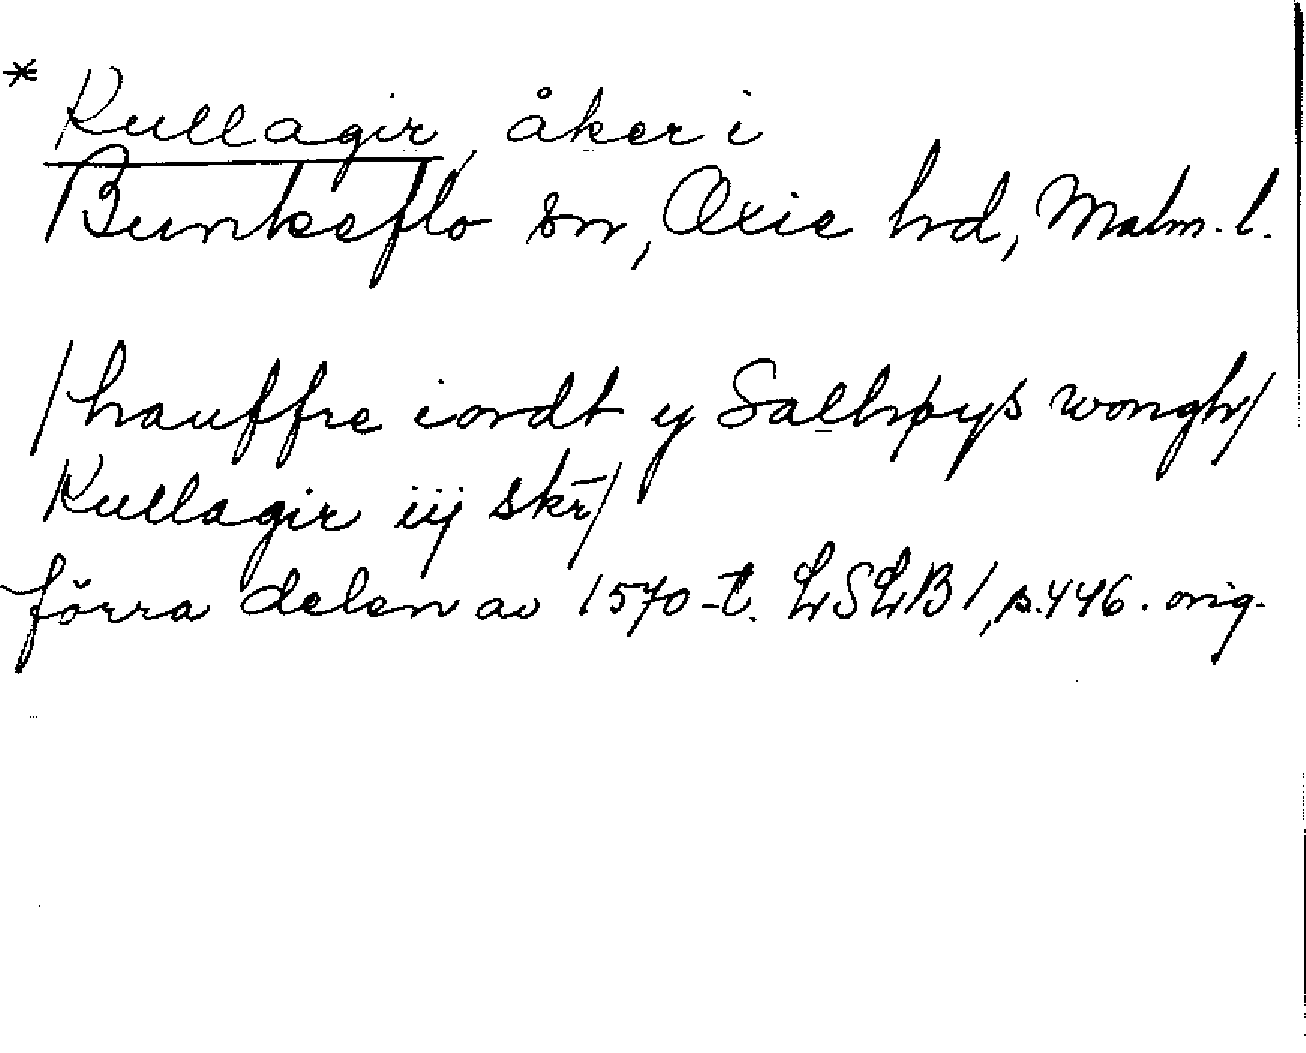 * Kullagir, åker i
Bunkeflo sn, Oxie hd, Malm. l.
/hauffre iordt y Salhøys wongh/
Kullagir iij skr̄/
förra delen av 1570-t. LSLB 1, p. 446. orig.